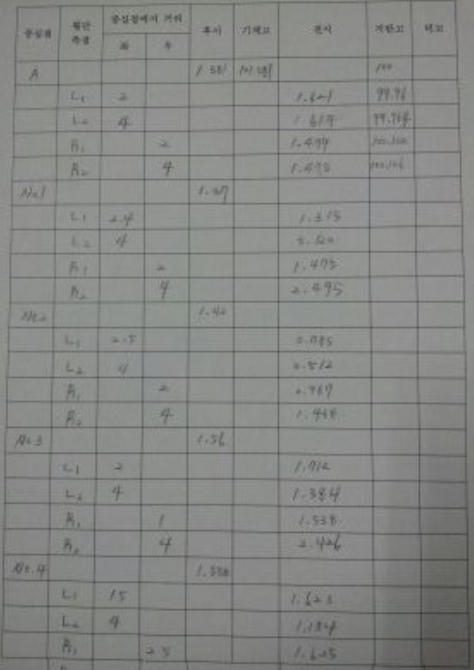 중심점 횡단측점 중심점에서 거리 후시 기계고 전시 지반고 비고
좌 우
A 1.581 101.581 100
L₁ 2 1.621 99.96
L₂ 4 1.617 99.964
R₁ 2 1.479
R₂ 4 1.475
No.1
L₁ 2.4 1.315
L₂ 4
R₁ 2 1.475
R₂ 4 2.495
No.2 1.42
L₁ 2.5 0.785
L₂ 4 0.512
R₁ 2 0.967
R₂ 4 1.468
No.3 1.56
L₁ 2 1.712
L₂ 4 1.384
R₁ 1 1.538
R₂ 4 2.426
No.4
L₁ 15 1.623
L₂ 4 1.184
R₁ 2.5 1.625